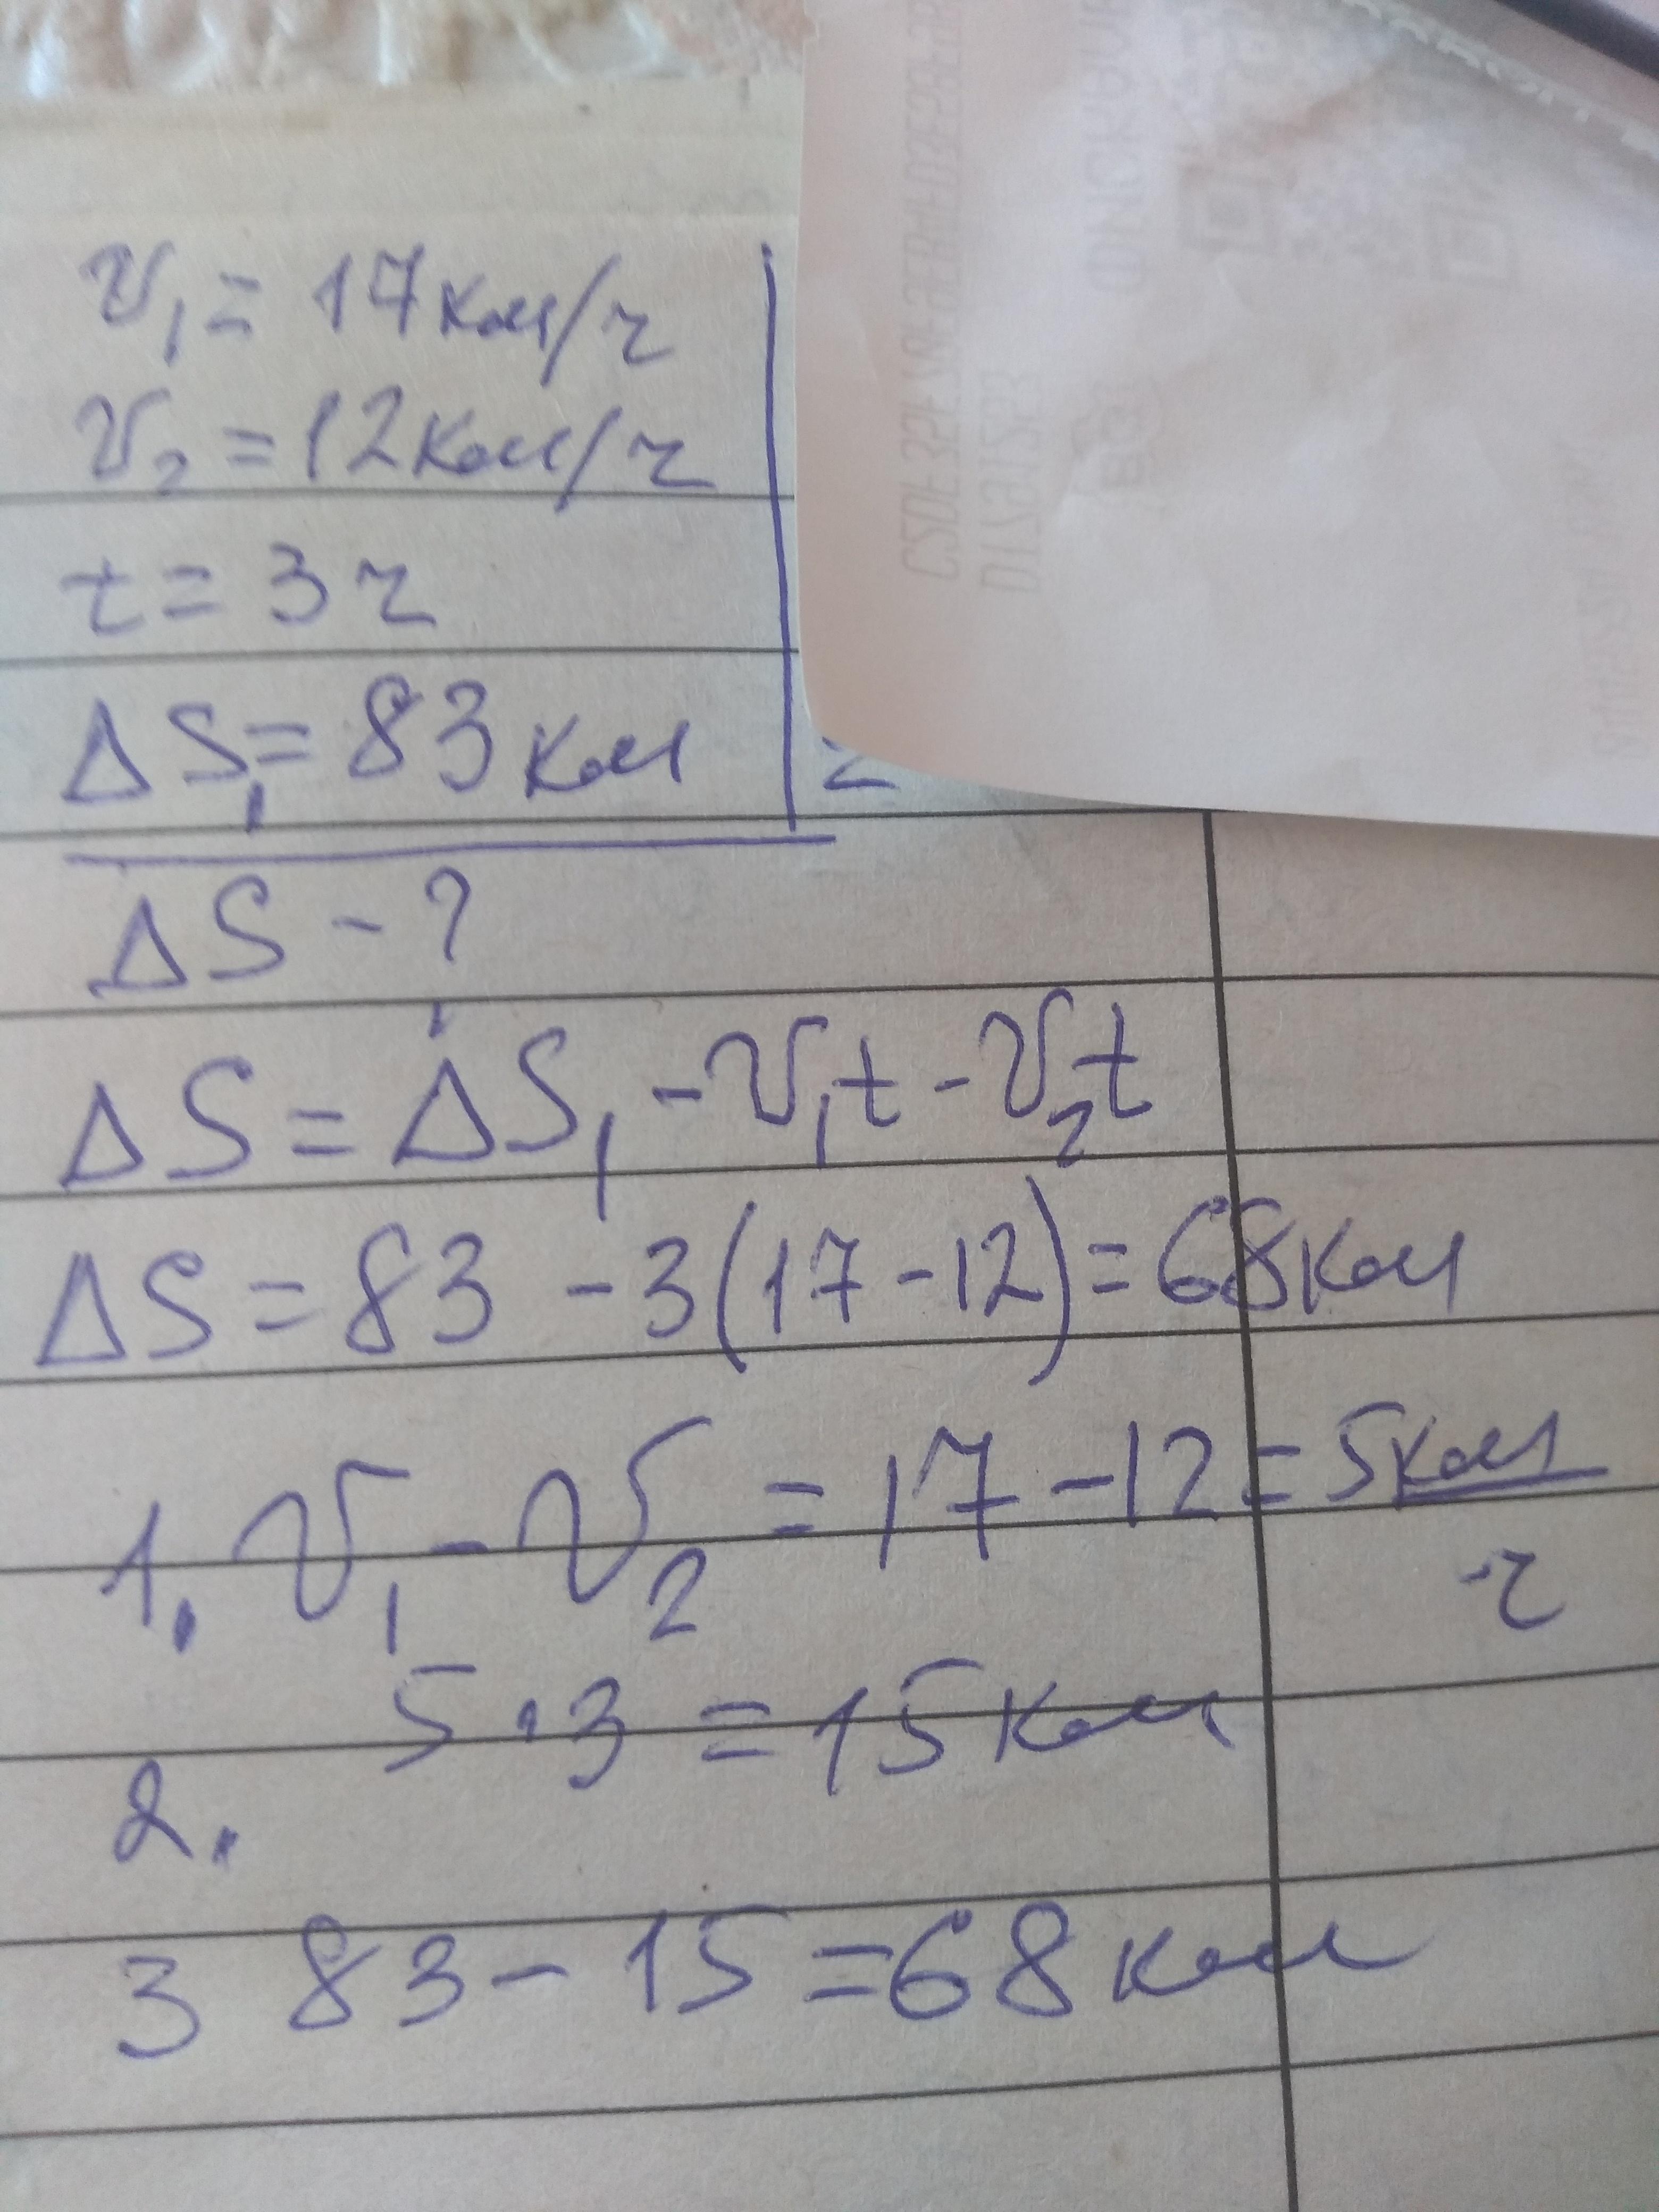 v₁ = 17 км/ч
v₂ = 12 км/ч
t = 3 ч
ΔS₁ = 83 км
ΔS - ?
ΔS = ΔS₁ - v₁t - v₂t
ΔS = 83 - 3(17 - 12) = 68 км
1. v₁ - v₂ = 17 - 12 = 5 км/ч
5 · 3 = 15 км
2.
3 83 - 15 = 68 км